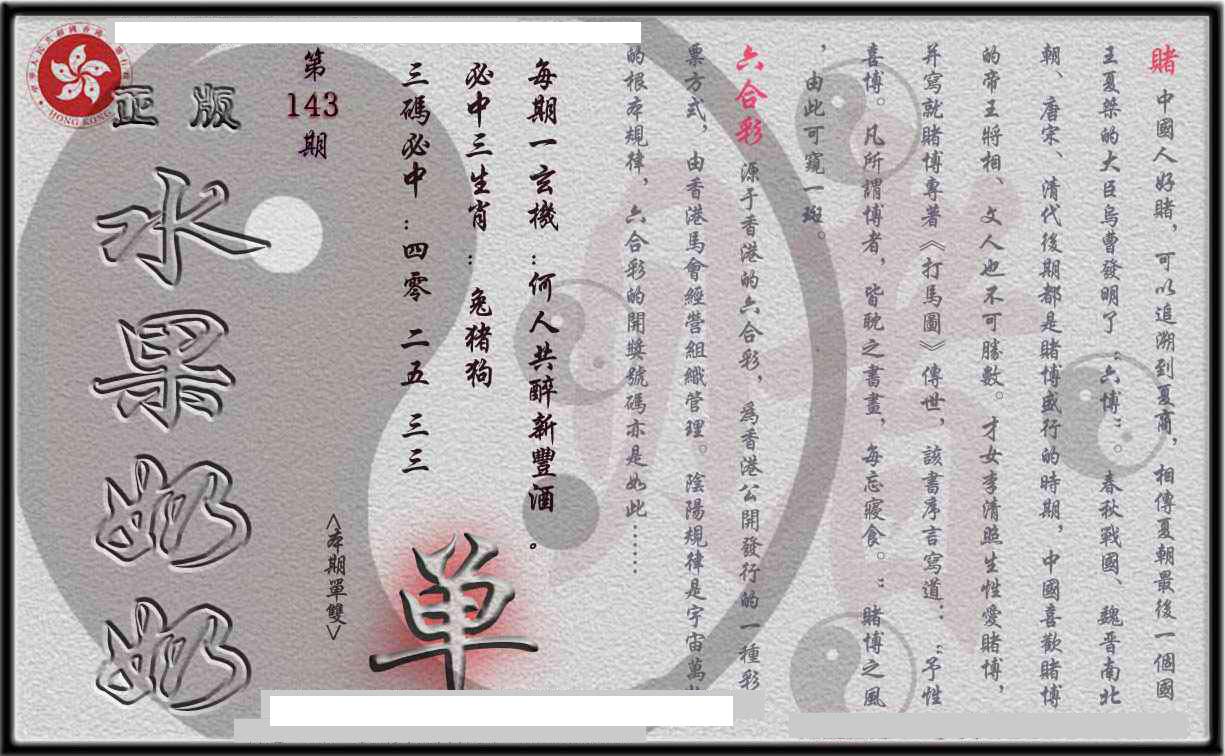 賭 中國人好賭，可以追溯到夏商，相傳夏朝最後一個國
王夏桀的大臣烏曹發明了“六博”。春秋戰國、魏晋南北
朝、唐宋、清代後期都是賭博盛行的時期，中國喜歡賭博
的帝王將相、文人也不可勝數。才女李清照生性愛賭博，
并寫就賭博專著《打馬圖》傳世，該書序言寫道：“予性
喜博。凡所謂博者，皆耽之書畫，每忘寢食。”賭博之風
，由此可窺一斑。
六合彩 源于香港的六合彩，為香港公開發行的一種彩
票方式，由香港馬會經營組織管理。陰陽規律是宇宙萬
的根本規律，六合彩的開獎號碼亦是如此……
每期一玄機：何人共醉新豐酒。
必中三生肖：兔猪狗
三碼必中：四零 二五 三三
第
143
期
<本期單雙>
单
正版
水果奶奶
HONG KONG